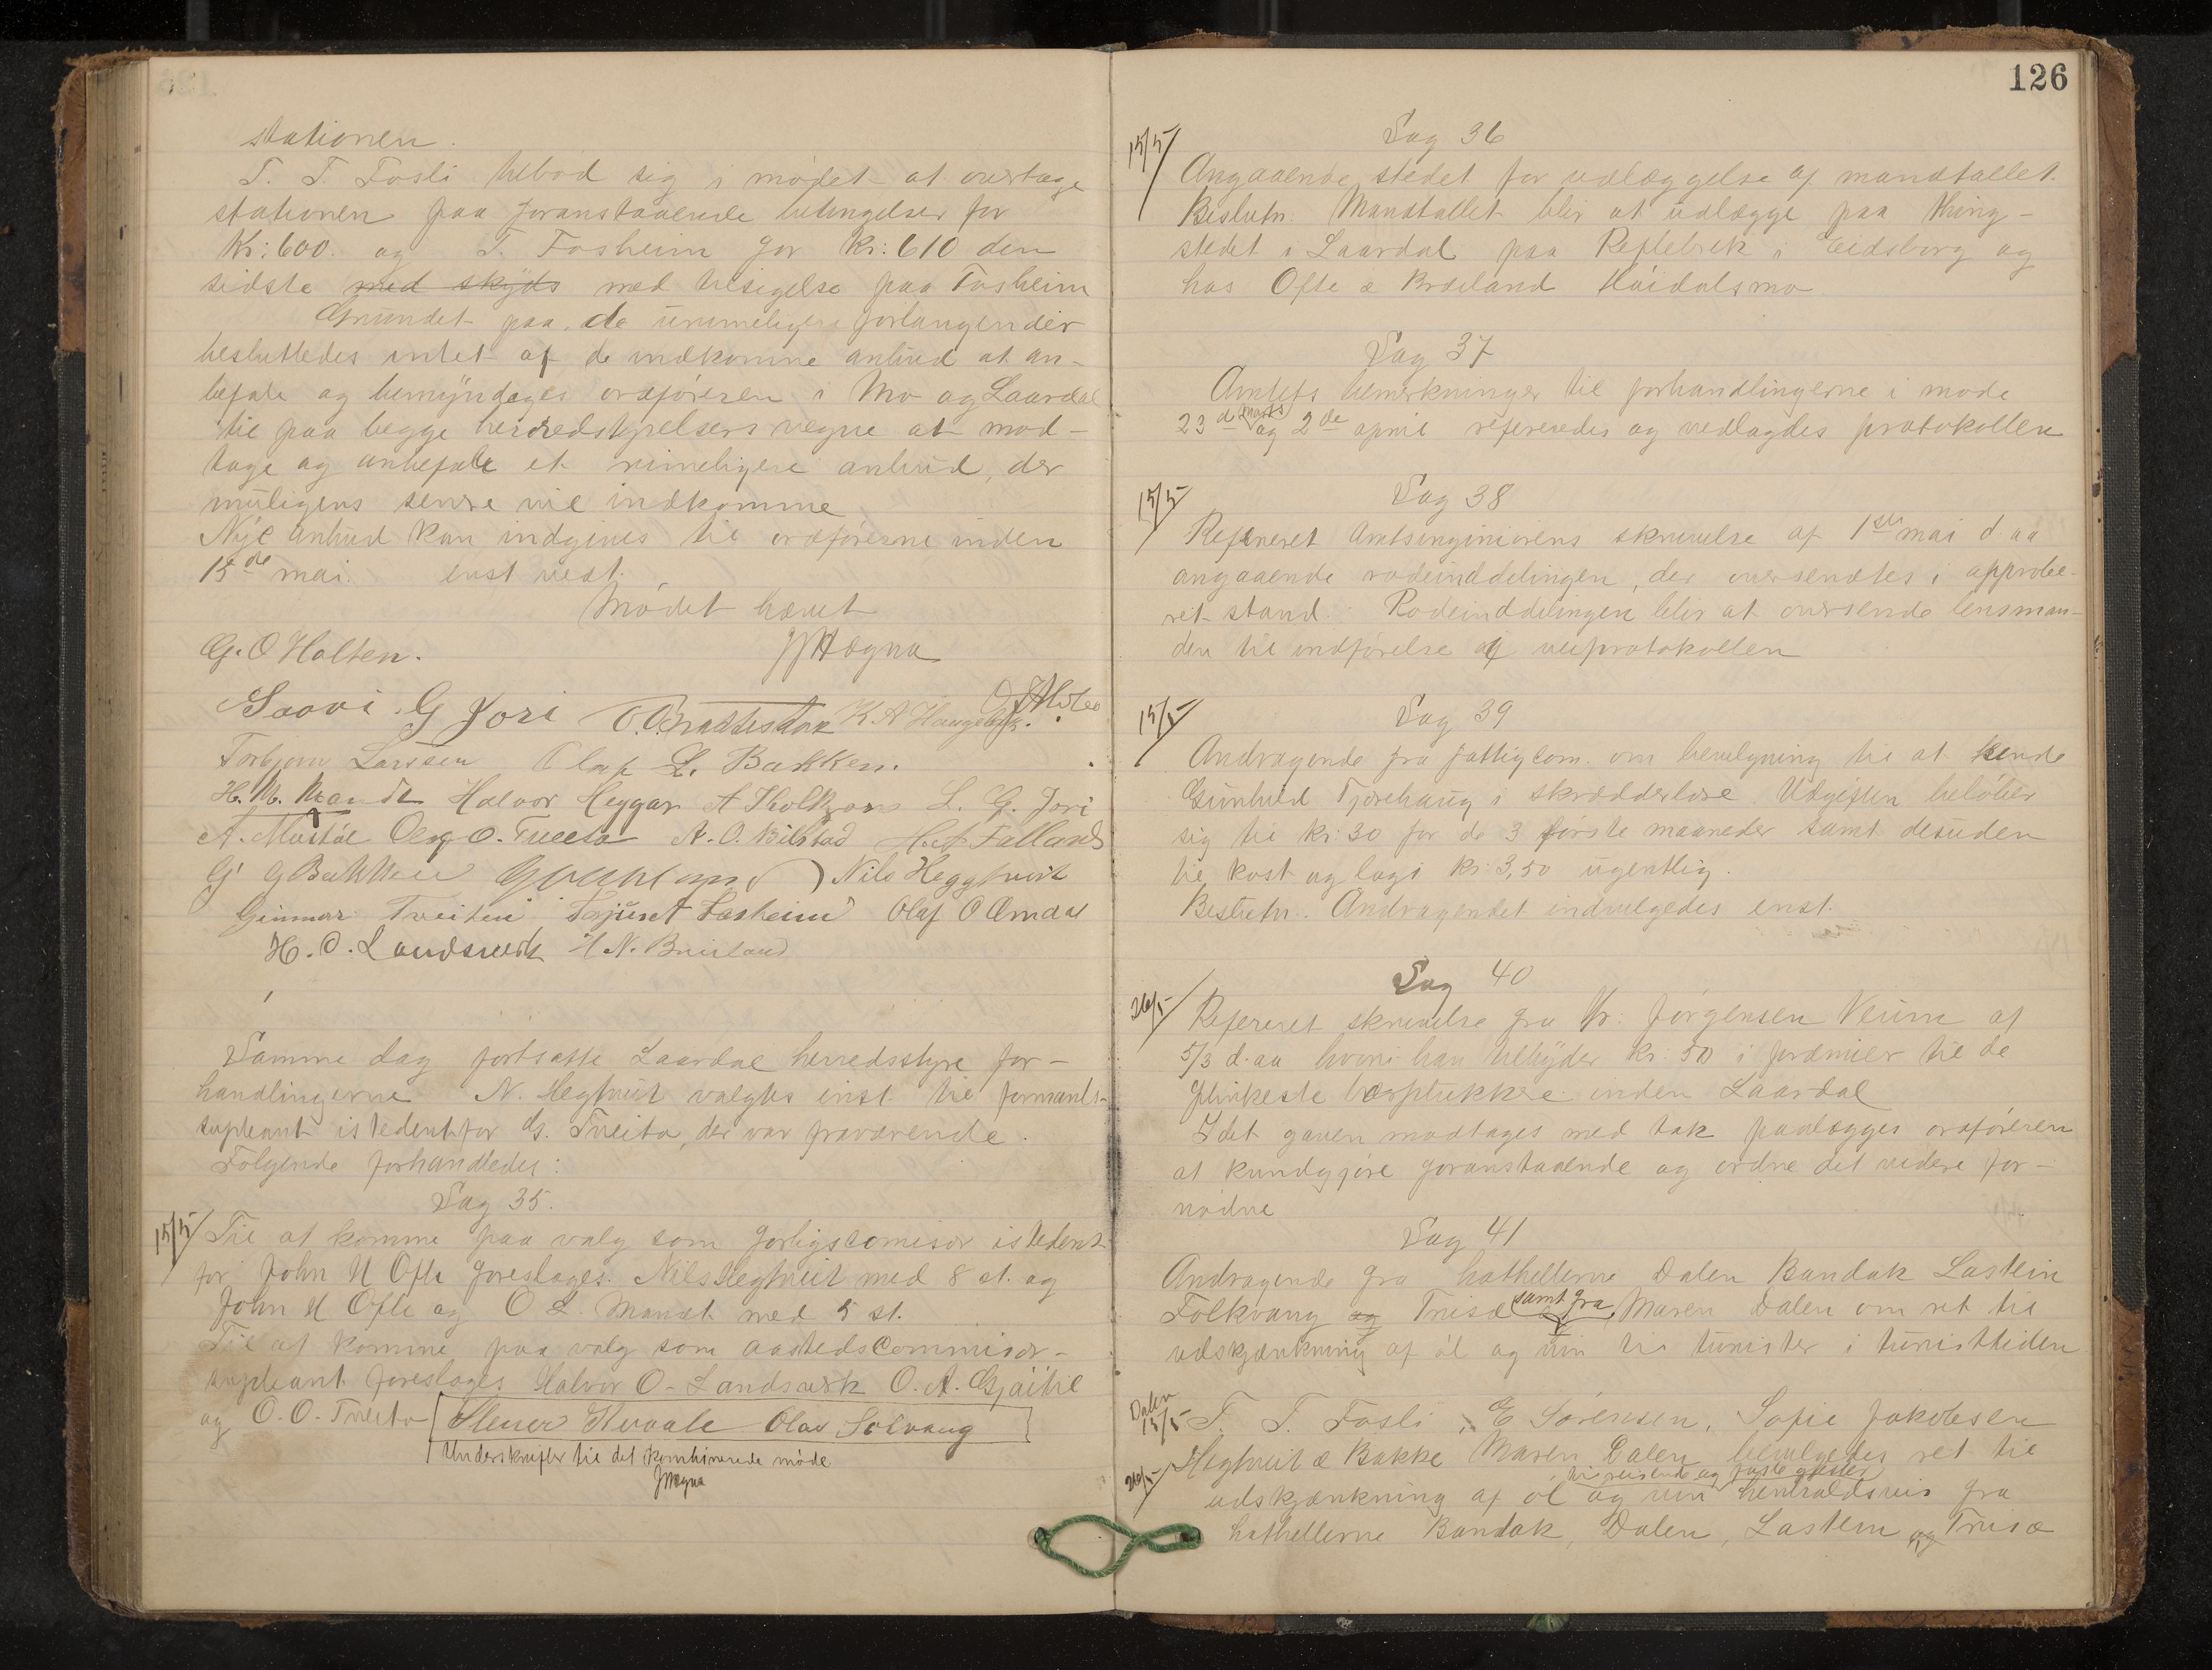 stationen.
T. T. Fosli tilbød sig i mødet at overtage
stationen paa foranstaaende betingelser for
Kr: 600. og T. Fosheim for Kr: 610 den
sidste med skyds med tilsigelse paa Fosheim
Grundet paa de urimelige forlangender
besluttedes intet af de indkomne anbud at an-
befale og bemyndiges ordføreren i Mo og Laardal
til paa begge herredstyrelsers vegne at mod-
tage og anbefale et rimeligere anbud, der
muligens senre vil indkomme
Nye anbud kan indgives til ordførerne inden
15de mai. enst vedt.
Mødet hævet
G. O Holten.
Saavi G Jori K A Haugebjør.
Torbjørn Larssen Olaf L. Bakken.
Halvor Heggar L. G. Jori
Oleg O. Tveito A. O. Bilstad
G G Bakken Nils Heggtveit
Gunnar Tveiten Tarjus A Fosheim Olaf O Omdal
H. O. Landsverk H N. Bræiland
Samme dag fortsatte Laardal herredsstyre for-
handlingerne N. Hegtveit valgtes enst. til formands-
supleant istedentfor G. Tveito, der var fraværende.
Følgende forhandledes:
Sag 35.
15/5 Til at komme paa valg som forligscomisær istedent-
for John H Ofte foreslages. Nils Hegtveit med 8 st. og
John H Ofte og O L. Mandt med 5 st.
Til at komme paa valg som aastedscommisær-
supleant foreslages Halvor O. Landsverk O. A. Gjøitil
og O. O. Tveito Stener Kvaale Olav Solvang
Underskrifter til det kombinerede møde
126
Sag 36
15/5
Angaaende stedet for udlæggelse af mandtallet.
Beslutn. Mandtallet blir at udlægge paa thing-
stedet i Laardal paa Reflebrek i Eidsborg og
hos Ofte & Bræiland Høidalsmo
Sag 37
Amtets bemerkninger til forhandlingerne i møde
23d marts og 2de april refereredes og vedlagdes protokollen
15/5 Sag 38
Referert Amtsingeniørens skrivelse af 1ste mai d. aa
angaaende rodeinddelingen, der oversendtes i approbe-
ret stand. Rodeinddelingen blir at oversende lensman-
den til indførelse i veiprotokollen
15/5 Sag 39
Andragende fra fattigcom. om bevilgning til at sende
Gunhild Tjørehaug i skrædderlære Udgiften beløber
sig til kr: 30 for de 3 første maaneder samt desuden
til kost og logi kr: 3,50 ugentlig.
Beslutn. Andragendet indvilgedes enst.
Sag 40
26/5
Referert skrivelse fra Hr: Jørgensen Veum af
5/3 d. aa hvori han tilbyder kr: 50 i præmier til de
flinkeste bærplukkere inden Laardal
Idet gaven modtages med tak paalægges ordføreren
at kundgjøre foranstaaende og ordne det videre for-
nødne
Sag 41
Andragende fra hothellerne Dalen Bandak Lastein
Folkvang og Trisæ samt fra Maren Dalen om ret til
udskjænkning af øl og vin til turister i turisttiden
Dalen
15/5 T. T. Fosli, E Sørensen, Sofie Jakobsen
Hegtveit & Bakke Maren Dalen bevilgedes ret til
til reisende og faste gjester
26/5 udskjænkning af øl og vin henholdsvis fra
hothellerne Bandak, Dalen, Lastein og Trisæ